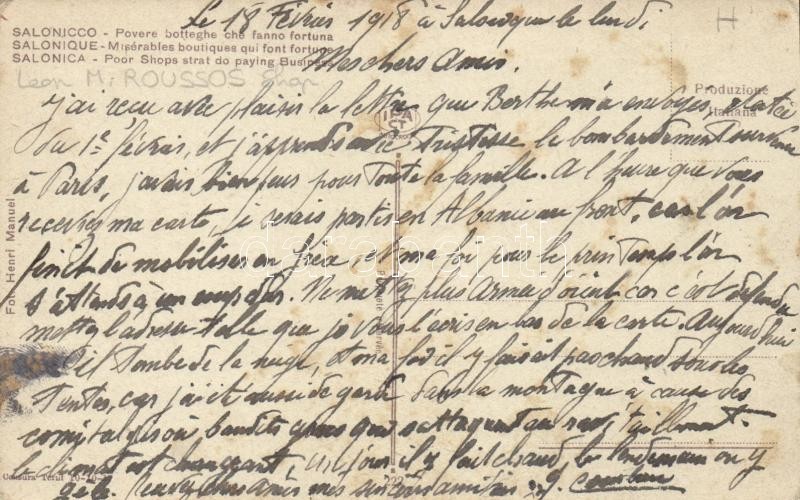 Le 18 Février 1918 à Salonique le lundi
H
SALONICCO - Povere botteghe che fanno fortuna
SALONIQUE - Misérables boutiques qui font fortune
SALONICA - Poor Shops strat do paying Business
Mes chers Amis.
Leon M. ROUSSOS Shop
Produzione
Italiana
J'ai reçu avec plaisir la lettre que Berthe m'a envoyés, datée
du 1er février, et j'apprends avec Tristesse le bombardement
à Paris, j'avais bien peur pour toute la famille. A l'heure que vous
recevrez ma carte, je serais partis en Albanie au front, car l'on
finit de mobiliser en Grèce, et ma foi pour le printemps l'on
s'attends à un coup dur. Ne mettez plus Armée d'orient car c'est défendu
mettez l'adresse telle que je vous l'écris en bas de la carte. Aujourd'hui
il tombe de la neige, et ma foi il y faisait pas chaud sous les
Tentes, car j'ai été aussi de garde dans la montagne à cause des
comitadjis où bandits grecs que s'attaquent au
le climat est changeant, un jour il y fait chaud le lendemain on y
gèle. Recevez chers amis mes sincères amitiés. G.
Fot. Henri Manuel
darabanth
222
Censura Terni 10-10-